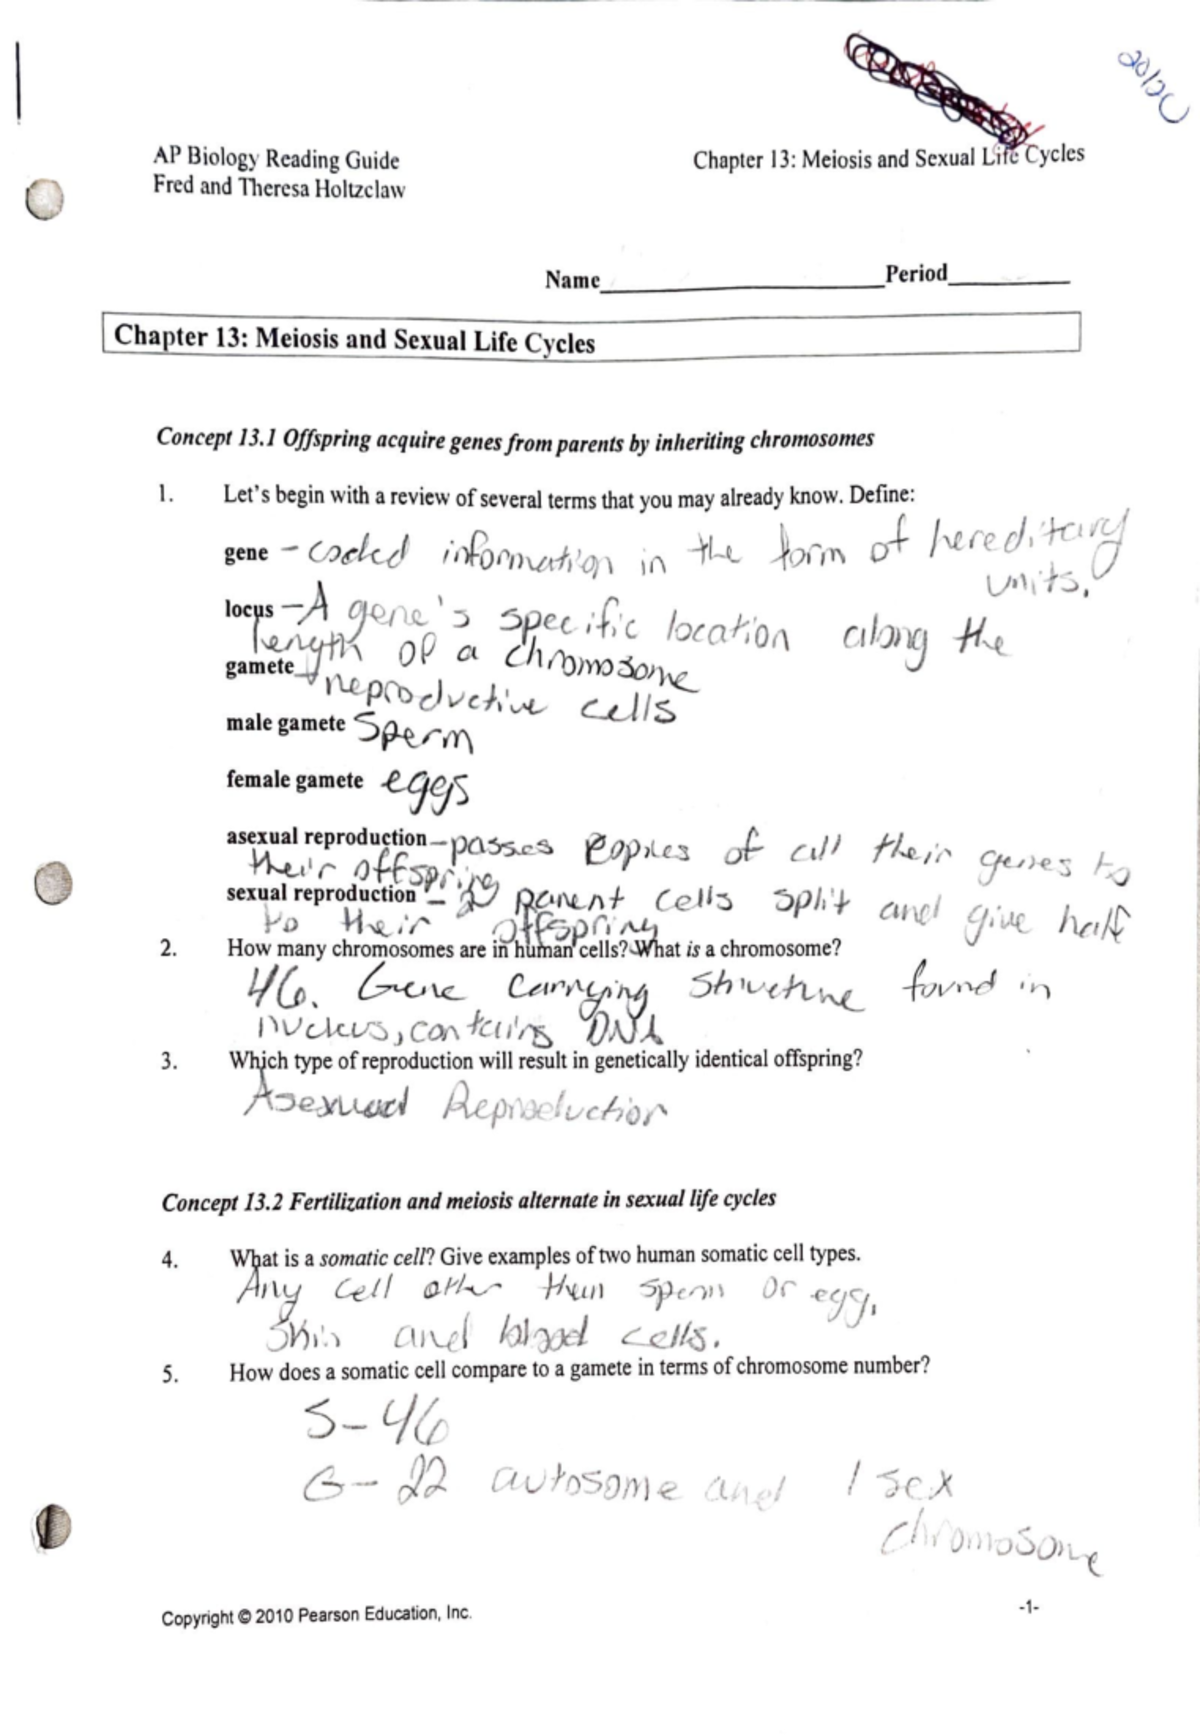 20/20
AP Biology Reading Guide
Chapter 13: Meiosis and Sexual Life Cycles
Fred and Theresa Holtzclaw
Name Period
Chapter 13: Meiosis and Sexual Life Cycles
Concept 13.1 Offspring acquire genes from parents by inheriting chromosomes
1. Let's begin with a review of several terms that you may already know. Define:
gene – coded information in the form of hereditary
units.
locus – A gene's specific location along the
length of a chromosome
gamete – reproductive cells
male gamete Sperm
female gamete eggs
asexual reproduction – passes copies of all their genes to
their offspring
sexual reproduction – 2 parent cells split and give half
to their offspring
2. How many chromosomes are in human cells? What is a chromosome?
46. Gene carrying structure found in
nucleus, contains DNA
3. Which type of reproduction will result in genetically identical offspring?
Asexual Reproduction
Concept 13.2 Fertilization and meiosis alternate in sexual life cycles
4. What is a somatic cell? Give examples of two human somatic cell types.
Any cell other then sperm or egg.
Skin and blood cells.
5. How does a somatic cell compare to a gamete in terms of chromosome number?
S – 46
G – 22 autosome and 1 sex
chromosome
Copyright © 2010 Pearson Education, Inc.
-1-